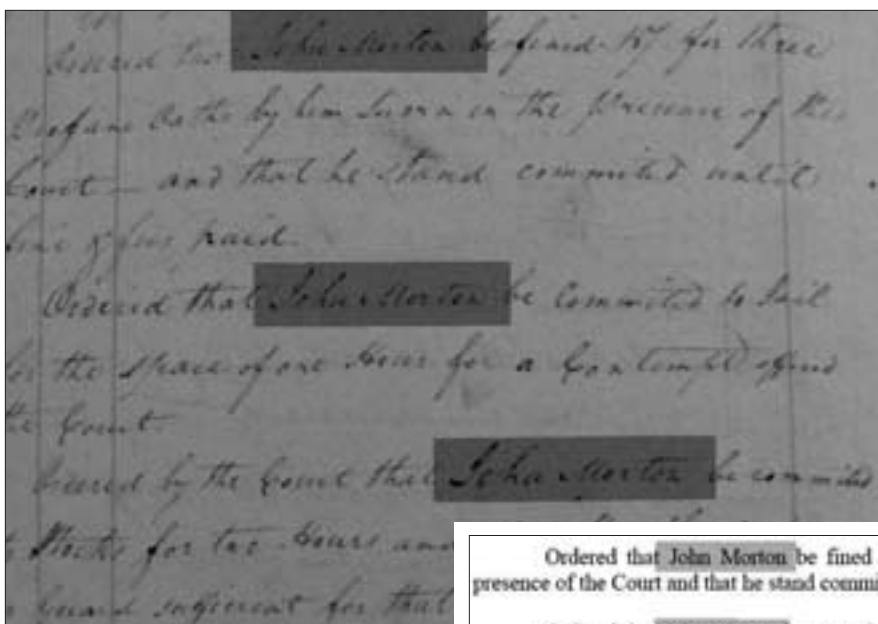 Ordered that John Morton be fined 17/ for three
Profane Oaths by him Sworn in the Presence of the
Court — and that he stand commited until
fine & fees paid.
Ordered that John Morton be Commited to Jail
for the space of one Hour for a Contempt offerd
the Court.
Ordered by the Court that John Morton be commited
Stocks for two Hours and
Guard suficient for that
Ordered that John Morton be fined
presence of the Court and that he stand commi